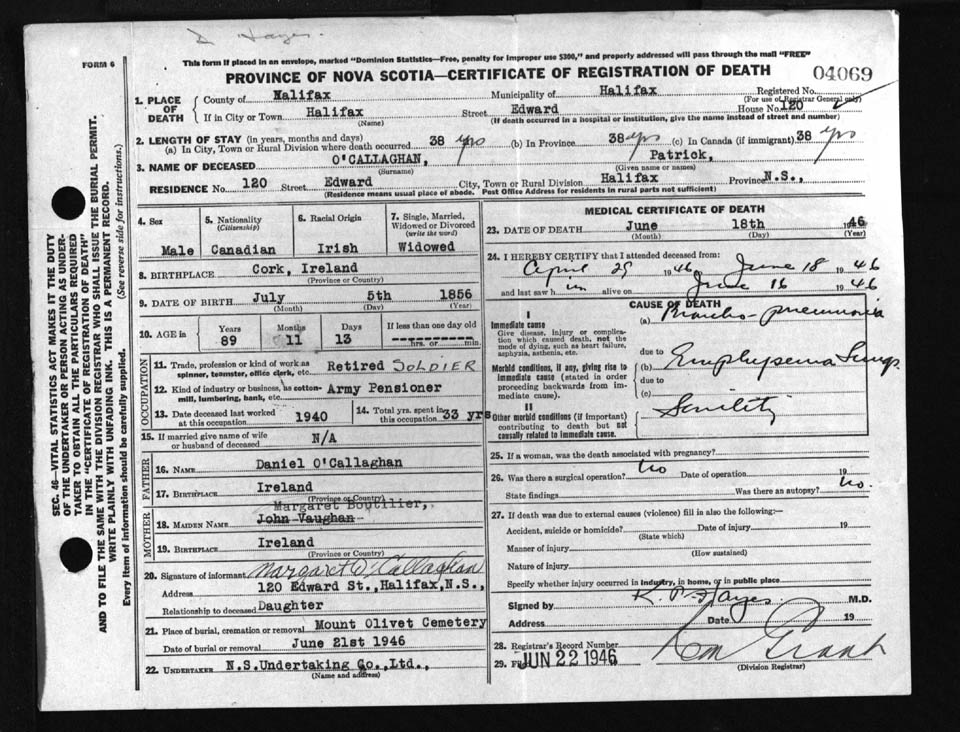 D Hayes.
This form if placed in an envelope, marked "Dominion Statistics—Free, penalty for improper use $300," and properly addressed will pass through the mail "FREE"
FORM 6
PROVINCE OF NOVA SCOTIA—CERTIFICATE OF REGISTRATION OF DEATH 04069
SEC. 46—VITAL STATISTICS ACT MAKES IT THE DUTY
OF THE UNDERTAKER OR PERSON ACTING AS UNDER-
TAKER TO OBTAIN ALL THE PARTICULARS REQUIRED
IN THE "CERTIFICATE OF REGISTRATION OF DEATH"
AND TO FILE THE SAME WITH THE DIVISION REGISTRAR WHO SHALL ISSUE THE BURIAL PERMIT.
WRITE PLAINLY WITH UNFADING INK. THIS IS A PERMANENT RECORD.
Every item of information should be carefully supplied. (See reverse side for instructions.)
1. PLACE OF DEATH County of Halifax Municipality of Halifax Registered No.
(For use of Registrar General only)
If in City or Town Halifax Street Edward House No. 120
(Name) (If death occurred in a hospital or institution, give the name instead of street and number)
2. LENGTH OF STAY (in years, months and days)
(a) In City, Town or Rural Division where death occurred 38 yrs (b) In Province 38 yrs (c) In Canada (if immigrant) 38 yrs
3. NAME OF DECEASED O'CALLAGHAN, Patrick,
(Surname) (Given name or names)
RESIDENCE No. 120 Street Edward City, Town or Rural Division Halifax Province N.S.,
(Residence means usual place of abode. Post Office Address for residents in rural parts not sufficient)
4. Sex 5. Nationality (Citizenship) 6. Racial Origin 7. Single, Married, Widowed or Divorced (write the word)
Male Canadian Irish Widowed
8. BIRTHPLACE Cork, Ireland
(Province or Country)
9. DATE OF BIRTH July 5th 1856
(Month) (Day) (Year)
10. AGE in Years Months Days If less than one day old
89 11 13 hrs. or min.
OCCUPATION
11. Trade, profession or kind of work as spinner, teamster, office clerk, etc. Retired SOLDIER
12. Kind of industry or business, as cotton-mill, lumbering, bank, etc. Army Pensioner
13. Date deceased last worked at this occupation 1940 14. Total yrs. spent in this occupation 33 yrs
15. If married give name of wife or husband of deceased N/A
FATHER
16. NAME Daniel O'Callaghan
17. BIRTHPLACE Ireland
(Province or Country)
MOTHER
Margaret Boutilier,
18. MAIDEN NAME John Vaughan
19. BIRTHPLACE Ireland
(Province or Country)
20. Signature of informant Margaret O'Callaghan
Address 120 Edward St., Halifax, N.S.,
Relationship to deceased Daughter
21. Place of burial, cremation or removal Mount Olivet Cemetery
Date of burial or removal June 21st 1946
22. UNDERTAKER N.S.Undertaking Co.,Ltd.,
(Name and address)
MEDICAL CERTIFICATE OF DEATH
23. DATE OF DEATH June 18th 1946
(Month) (Day) (Year)
24. I HEREBY CERTIFY that I attended deceased from:
April 29 1946 to June 18 1946
and last saw him alive on June 16 1946
CAUSE OF DEATH
I
Immediate cause (a) Broncho-pneumonia
Give disease, injury or complica-
tion which caused death, not the
mode of dying, such as heart failure,
asphyxia, asthenia, etc.
due to
Morbid conditions, if any, giving rise to (b) Emphysema Lungs
immediate cause (stated in order due to
proceeding backwards from im-
mediate cause). (c)
II
Other morbid conditions (if important) Senility
contributing to death but not
causally related to immediate cause.
25. If a woman, was the death associated with pregnancy?
26. Was there a surgical operation? no Date of operation 19
State findings Was there an autopsy? no.
27. If death was due to external causes (violence) fill in also the following:—
Accident, suicide or homicide? Date of injury 19
(State which)
Manner of injury
(How sustained)
Nature of injury
Specify whether injury occurred in industry, in home, or in public place
Signed by K. P. Hayes M.D.
Address Date 19
28. Registrar's Record Number
29. Filed JUN 22 1946
(Division Registrar)